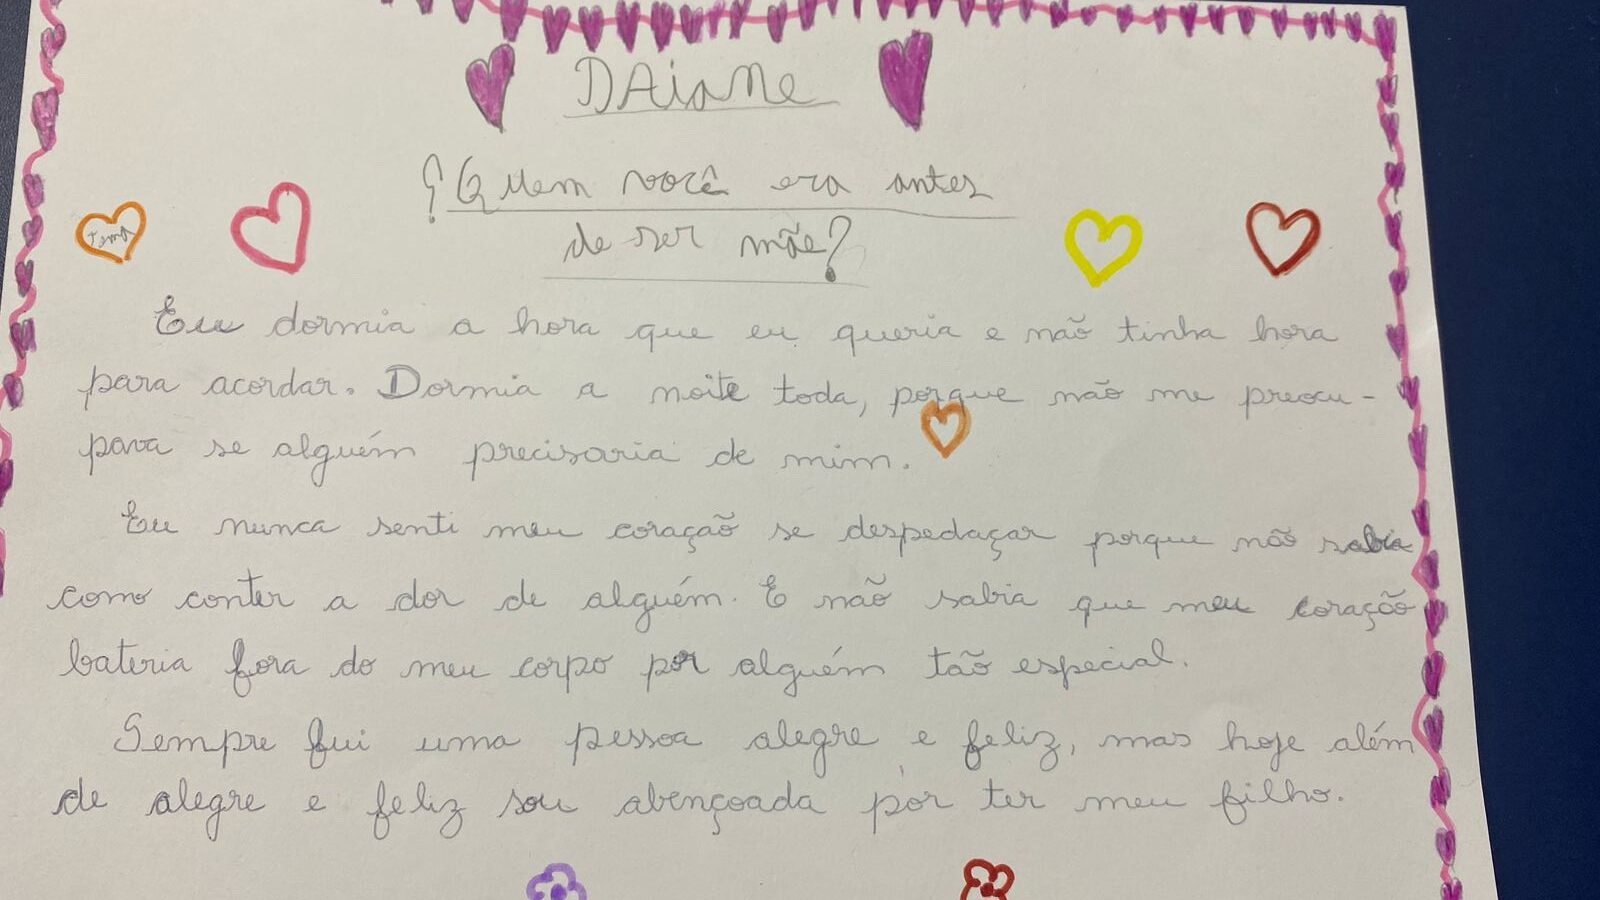 DAiane
¿Quem você era antes
de ser mãe?
tema
Eu dormia a hora que eu queria e não tinha hora
para acordar. Dormia a noite toda, porque não me preocu-
pava se alguém precisaria de mim.
Eu nunca senti meu coração se despedaçar porque não sabia
como conter a dor de alguém. E não sabia que meu coração
bateria fora do meu corpo por alguém tão especial.
Sempre fui uma pessoa alegre e feliz, mas hoje além
de alegre e feliz sou abençoada por ter meu filho.